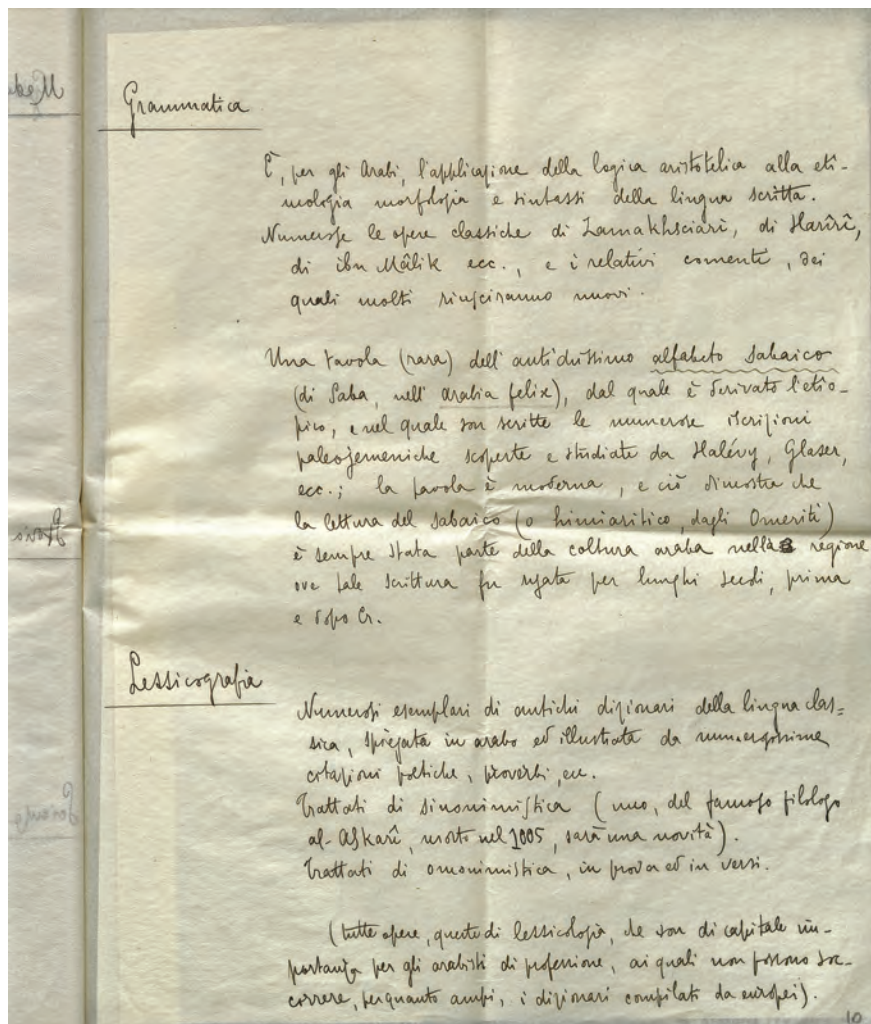 Grammatica
È, per gli Arabi, l'applicazione della logica aristotelica alla eti-
mologia morfologia e sintassi della lingua scritta.
Numerose le opere classiche di Zamakhsciarî, di Harîrî,
di ibn Mâlik ecc., e i relativi comenti, dei
quali molti riusciranno nuovi.
Una tavola (rara) dell'antichissimo alfabeto sabaico
(di Saba, nell'arabia felix), dal quale è derivato l'etio-
pico, e nel quale son scritte le numerose iscrizioni
paleojemeniche scoperte e studiate da Halévy, Glaser,
ecc.; la tavola è moderna, e ciò dimostra che
la lettura del sabaico (o himiaritico, dagli Omeriti)
è sempre stata parte della coltura araba nella regione
ove tale scrittura fu usata per lunghi secoli, prima
e dopo Cr.
Lessicografia
Numerosi esemplari di antichi dizionari della lingua clas=
sica, spiegata in arabo ed illustrata da numerosissime
citazioni poetiche, proverbi, ecc.
Trattati di sinonimistica (uno, del famoso filologo
al-Askarî, morto nel 1005, sarà una novità).
Trattati di omonimistica, in prosa ed in versi.
(tutte opere, queste di lessicologia, che son di capitale im-
portanza per gli arabisti di professione, ai quali non possono soc-
correre, perquanto ampi, i dizionari compilati da europei).
10